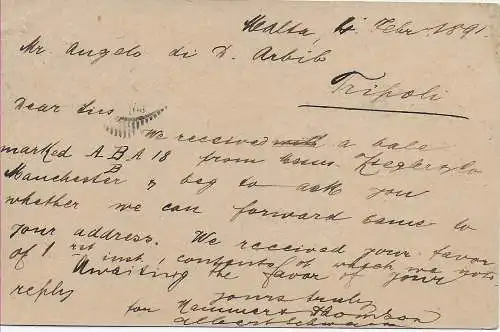 Malta, 4 Febr 1891
Mr. Angelo di D. Arbib
Tripoli
Dear Sirs
We received a bale
marked A.B.A 18 from Messrs. Ziegler &Co
B
Manchester & beg to ask you
whether we can forward same to
your address. We received your favor
of 1rst inst, contents of which we note.
Awaiting the favor of your
reply
yours truly
for